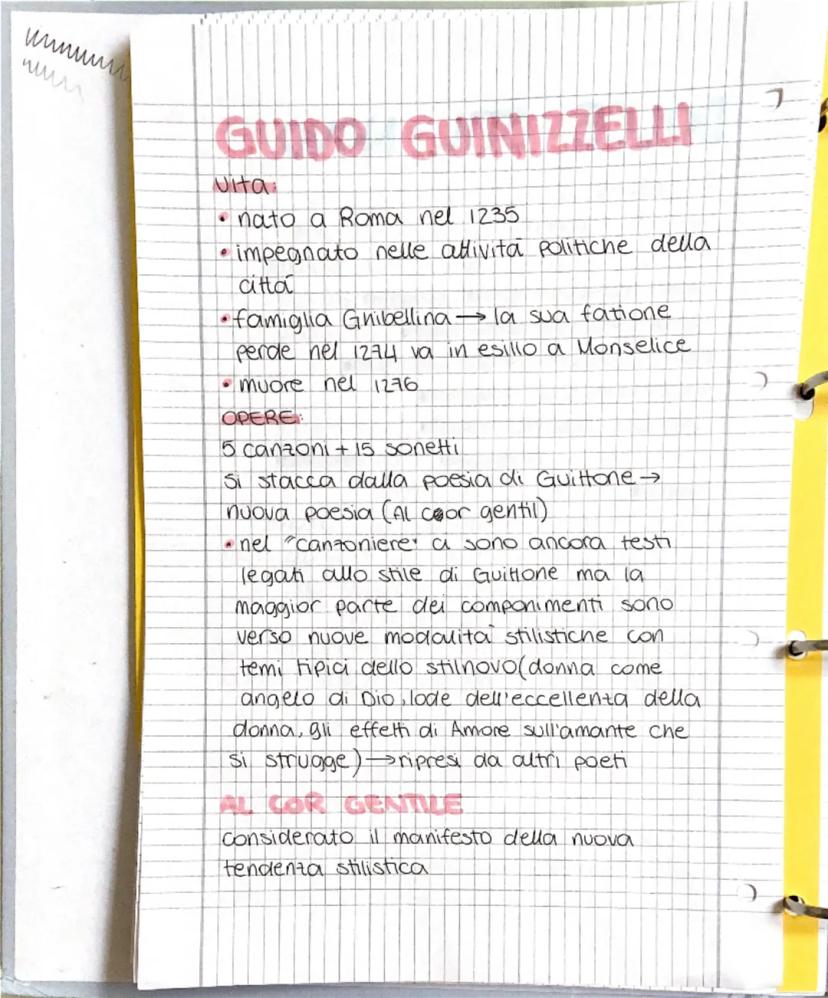 GUIDO GUINIZZELLI
Vita:
• nato a Roma nel 1235
• impegnato nelle attività politiche della
città
• famiglia Ghibellina → la sua fatione
perde nel 1274 va in esillo a Monselice
• muore nel 1276
OPERE:
5 canzoni + 15 sonetti
si stacca dalla poesia di Guittone →
nuova poesia (Al cor gentil)
• nel "canzoniere" ci sono ancora testi
legati allo stile di Guittone ma la
maggior parte dei componimenti sono
verso nuove modalità stilistiche con
temi tipici dello stilnovo (donna come
angelo di Dio, lode dell'eccellenza della
donna, gli effetti di Amore sull'amante che
si strugge) → ripresi da altri poeti
AL COR GENTILE
considerato il manifesto della nuova
tendenza stilistica